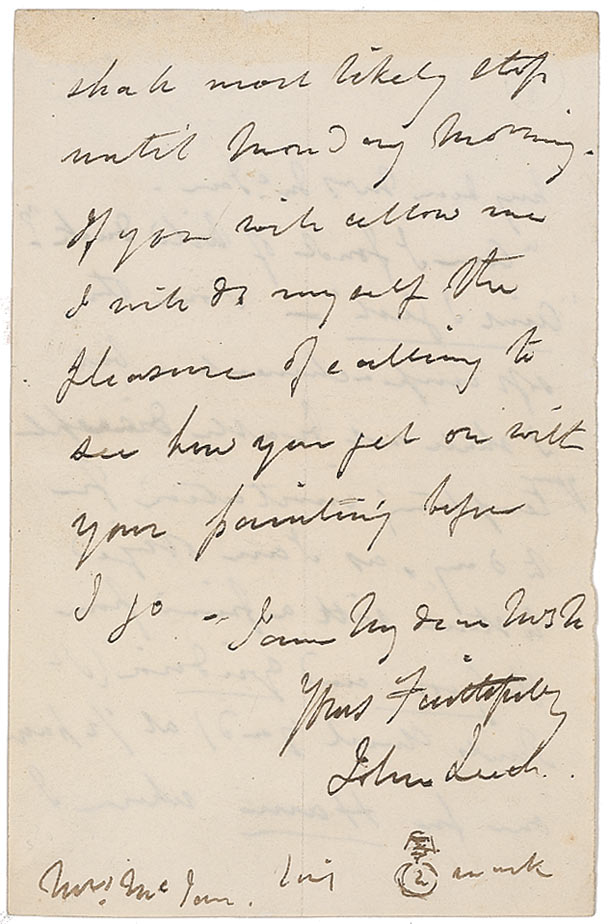 shall most likely stop
until Monday Morning.
If you will allow me
I will do myself the
pleasure of calling to
see how you get on with
your painting before
I go – I am My dear Mrs M
Yours Faithfully
John Leech.
Mrs. Mc Ian. his mark